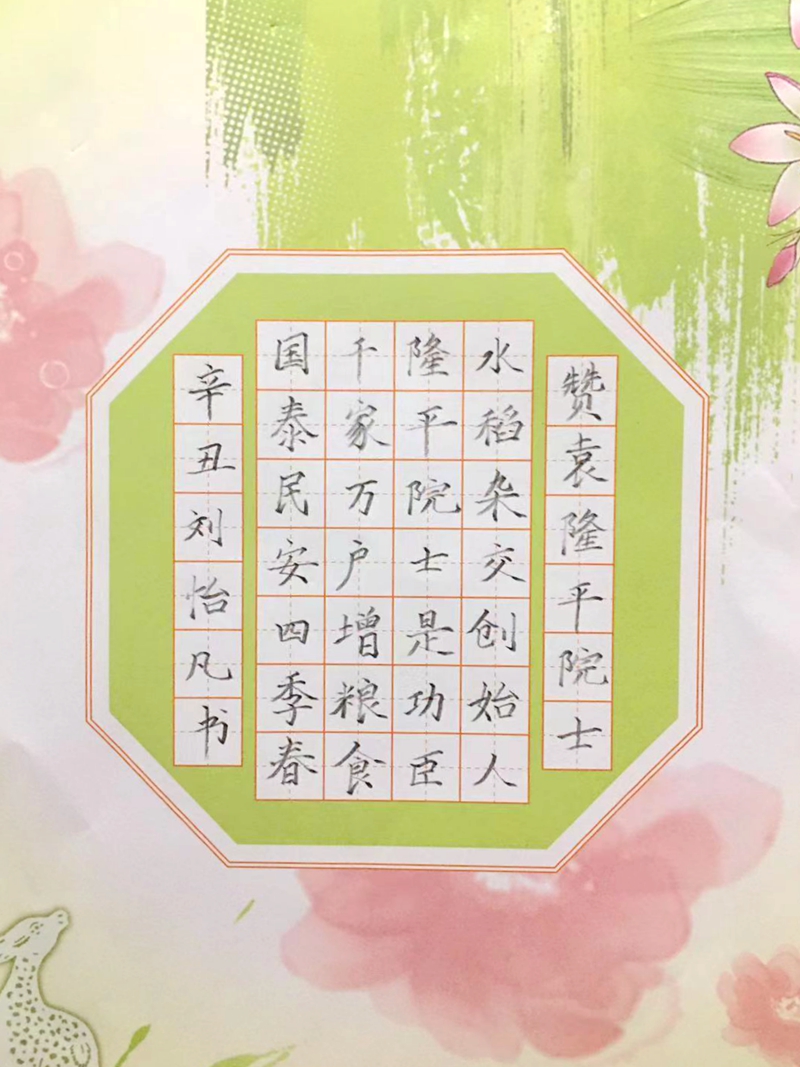 赞袁隆平院士
水稻杂交创始人
隆平院士是功臣
千家万户增粮食
国泰民安四季春
辛丑刘怡凡书